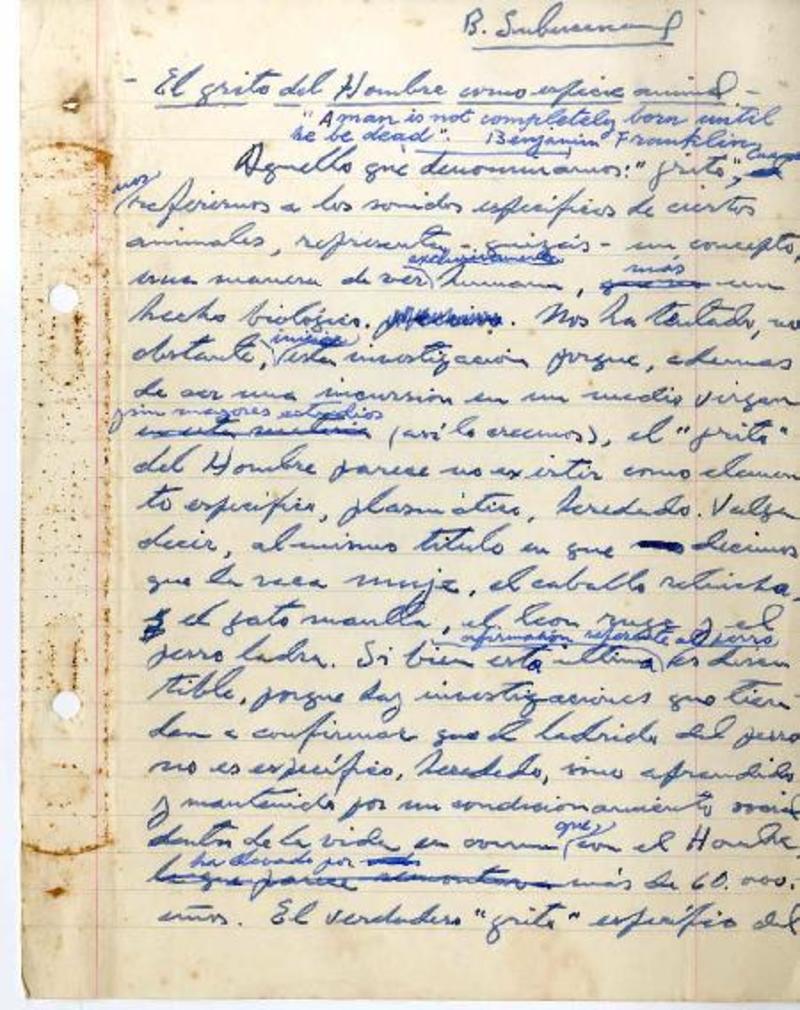 B.
- El grito del Hombre como especie animal -
"A man is not completely born until
he be dead". Benjamin Franklin
Aquello que denominamos: "grito", cuando
nos
referimos a los sonidos específicos de ciertos
animales, representa - quizás - un concepto,
exclusivamente
una manera de ver humana, más un
hecho biológico. Nos ha tentado, no
obstante, iniciar esta investigación porque, además
de ser una incursión en un medio virgen
y sin mayores estudios
(así lo creemos), el "grito"
del Hombre parece no existir como elemen
to específico, plasmático, heredado. Valga
decir, al mismo título en que decimos
que la vaca muje, el caballo relincha,
el gato maulla, el leon ruge y el
afirmación referente al perro
perro ladra. Si bien esta última es discu
tible, porque hay investigaciones que tien-
den a confirmar que el ladrido del perro
no es específico, heredado, sino aprendido
y mantenido por un condicionamiento social
dentro de la vida en comun que con el Hombre
ha llevado por
lo que parece remontarse más de 60.000.
años. El verdadero "grito" específico del